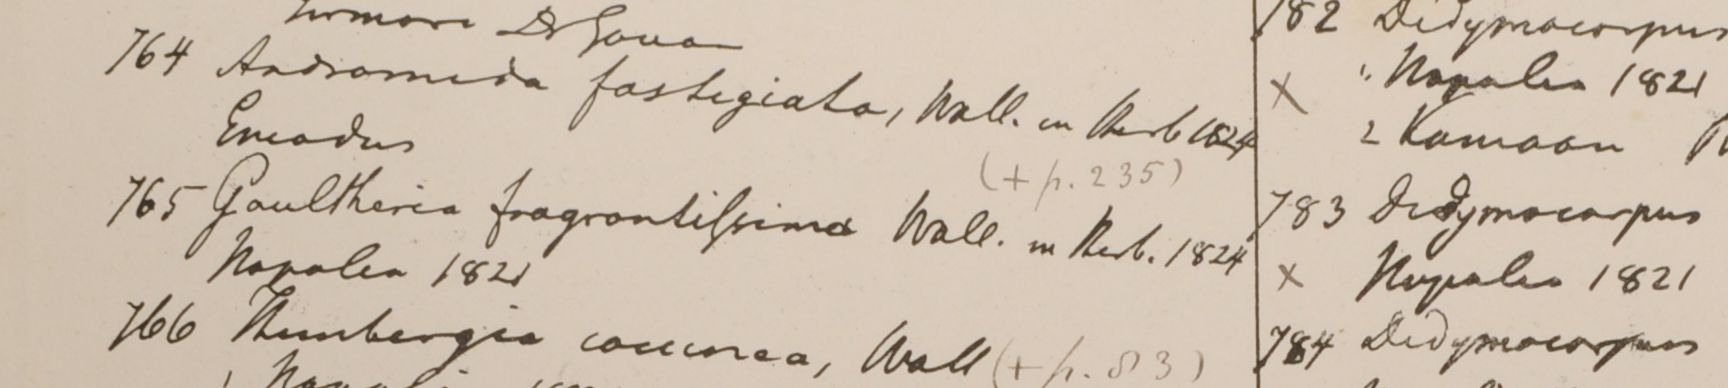 Sirmore Dr Govan
764 Andromeda fastigiata, Wall. in Herb 1824
Emodus
(+ p. 235)
765 Gaultheria fragrantiſsima Wall. in Herb. 1824
Napalia 1821
766 Thunbergia coccinea, Wall (+ p. 83)
782 Didymocarpus
1. Napalia 1821
x
2 Kamaon
783 Didymocarpus
x Napalia 1821
784 Didymocarpus